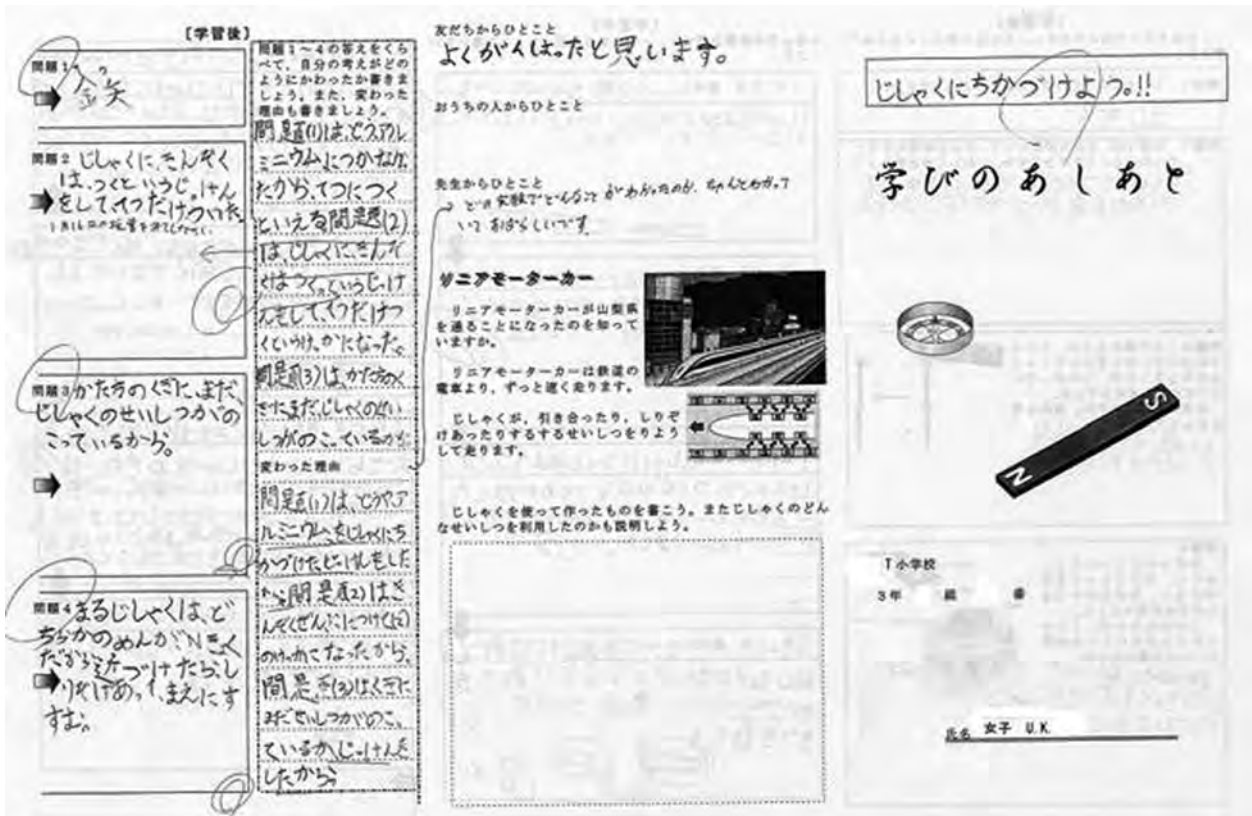 【学習後】
問題1
鉄
問題2 じしゃくに、きんぞく
は、つくというじっけん
をしててつだけついた。
問題3 かた方のくぎに、まだ、
じしゃくのせいしつがの
こっているから。
問題4 まるじしゃくは、ど
ちらかのめんがNきょく
だから近づけたら、し
りぞけあって、まえにす
すむ。
問題1～4の答えをくら
べて、自分の考えがどの
ようにかわったか書きま
しょう。また、変わった
理由も書きましょう。
問題(1)は、どうやアル
ミニウムにつかなか
たから、てつにつく
といえる問題(2)
は、じしゃくに、きんぞ
くはつく。というじっけ
んをしててつだけつ
くというけっかになった。
問題(3)は、かた方のく
ぎにまだ、じしゃくのせい
しつがのこっているから
変わった理由
問題(1)は、どうやア
ルミニウムをじしゃくにち
かづけたじっけんをした
から問題(2)はき
んぞくぜんぶにつけて(2)
のけっかになったから、
問題(3)はくぎに
まだせいしつがのこっ
ているかじっけんを
したから
友だちからひとこと
よくがんばったと思います。
おうちの人からひとこと
先生からひとこと
どの実験でどんなことがわかったのか、ちゃんとわかって
いてすばらしいです
リニアモーターカー
リニアモーターカーが山梨県
を通ることになったのを知って
いますか。
リニアモーターカーは鉄道の
電車より、ずっと速く走ります。
じしゃくが、引き合ったり、しりぞ
けあったりするするせいしつをりよう
して走ります。
じしゃくを使って作ったものを書こう。またじしゃくのどん
なせいしつを利用したのかも説明しよう。
じしゃくにちかづけよう。!!
学びのあしあと
S
N
T小学校
3年 組 番
氏名 女子 U.K.